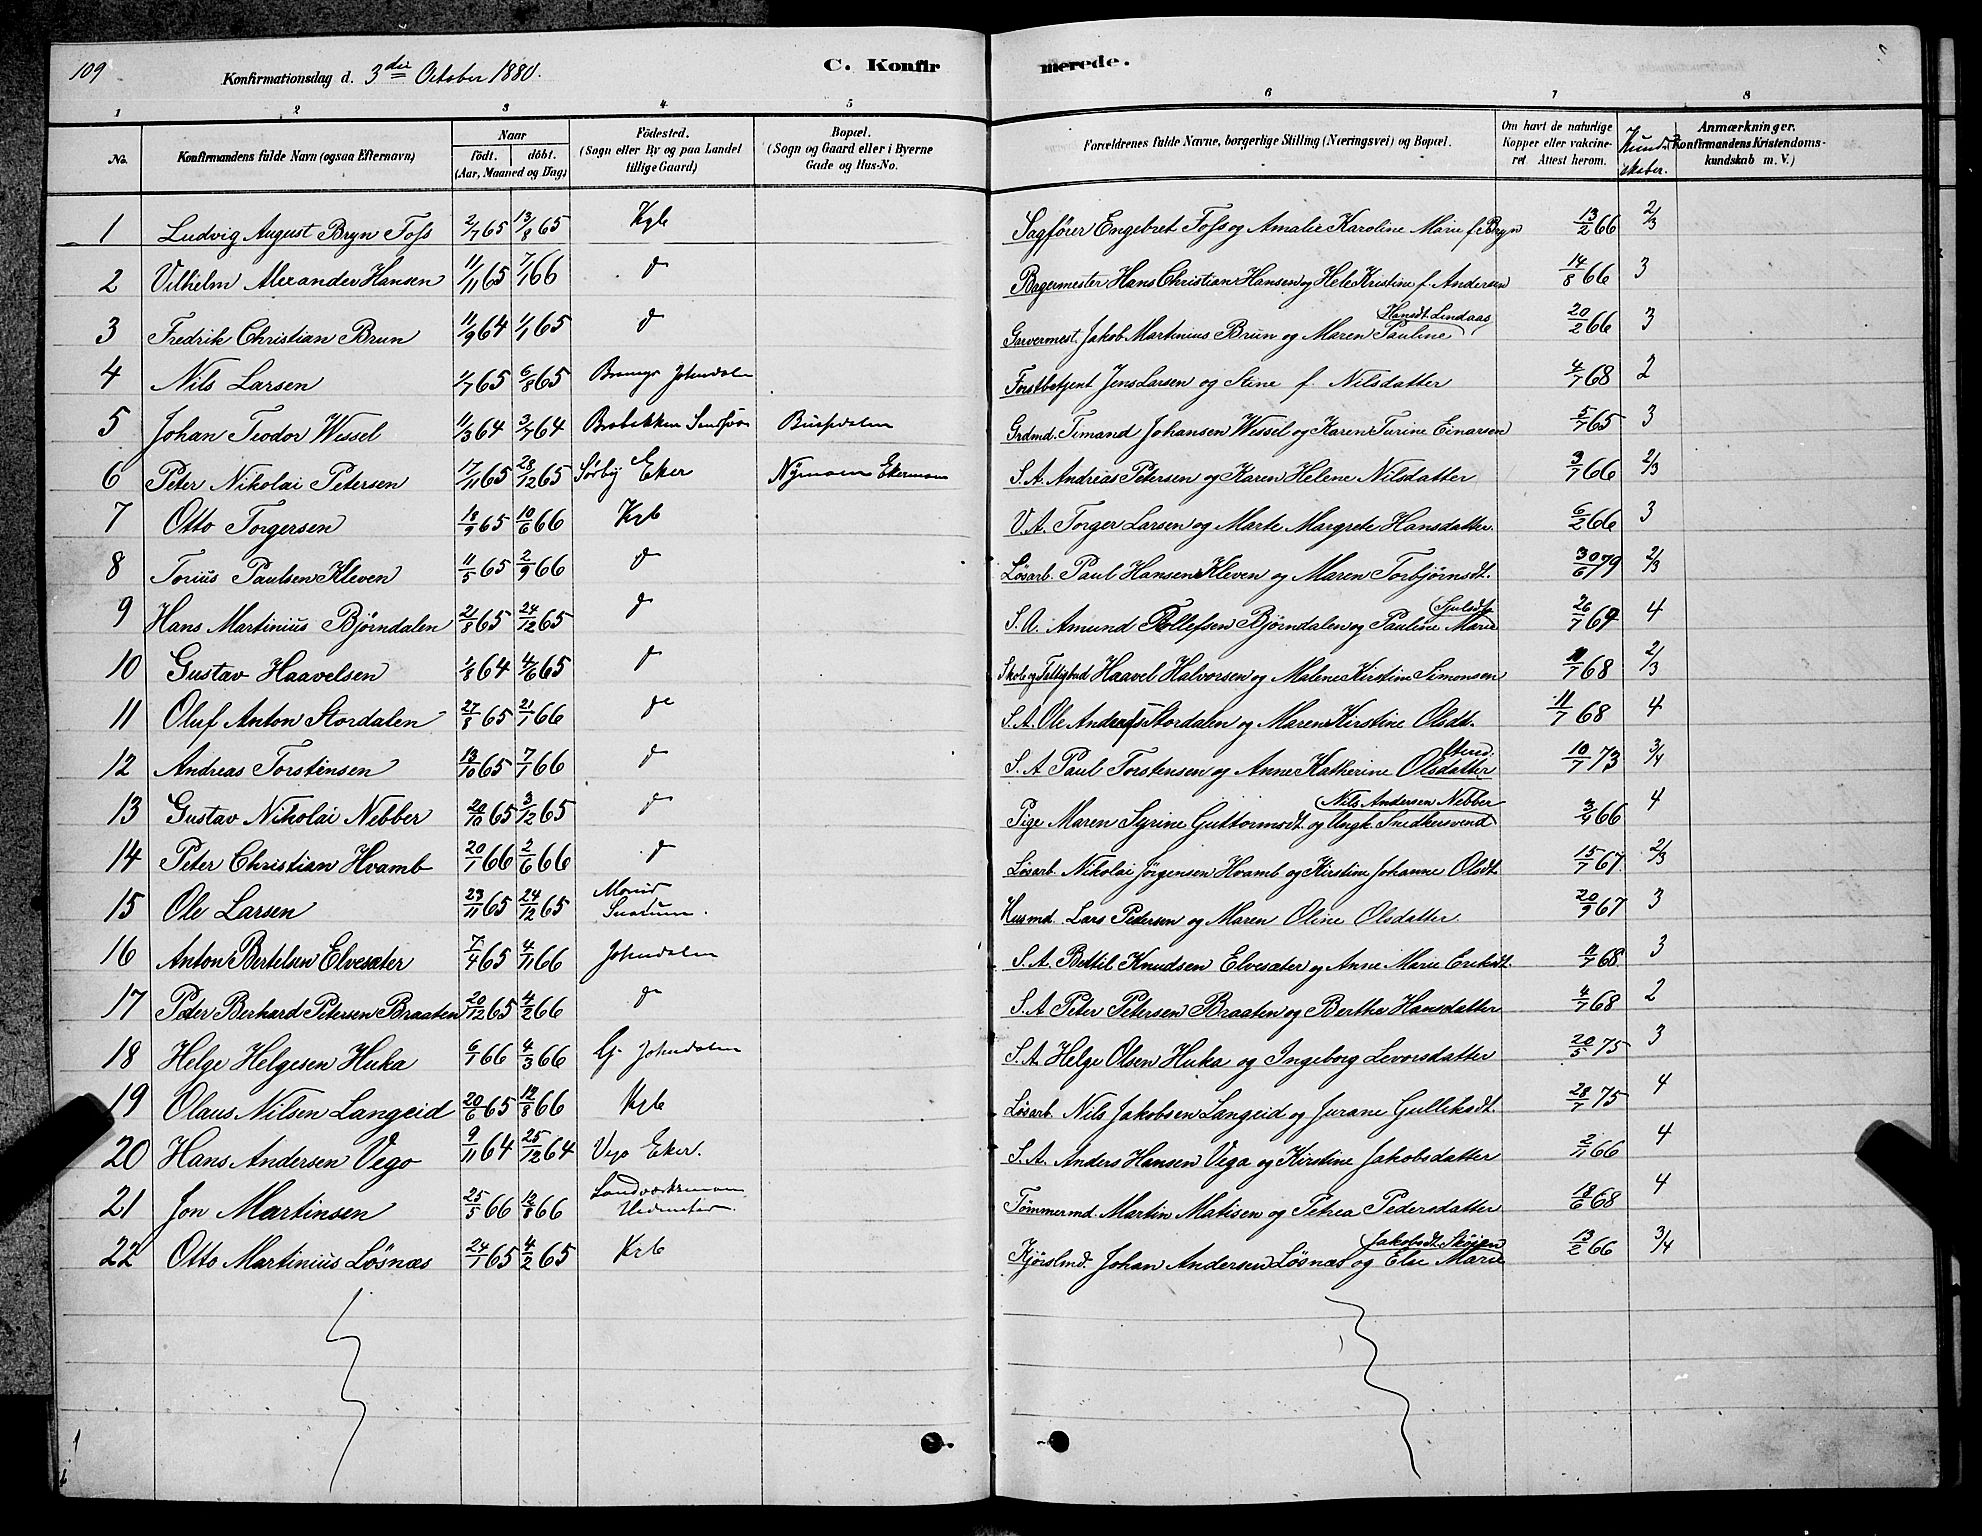 109
Konfirmationsdag d. 3die October 1880.
C. Konfirmerede.
1 2 3 4 5 6 7 8
No.
Konfirmandens fulde Navn (ogsaa Efternavn)
Naar
födt. döbt.
(Aar, Maaned og Dag)
Födested.
(Sogn eller By og paa Landet
tillige Gaard)
Bopæl.
(Sogn og Gaard eller i Byerne
Gade og Hus-No.
Forældrenes fulde Navne, borgerlige Stilling (Næringsvei) og Bopæl.
Om havt de naturlige
Kopper eller vakcine-
ret. Attest herom.
Kund-
skaber.
Anmærkninger.
Konfirmandens Kristendoms-
kundskab m. V.)
1 Ludvig August Bryn Foss 2/7 65 13/8 65 Kgb Sagfører Engebret Foss og Amalie Karoline Marie f. Bryn 13/2 66 2/3
2 Vilhelm Alexander Hansen 11/11 65 7/1 66 d Bagermester Hans Christian Hansen og Hele Kristine f. Andersen 14/8 66 3
3 Fredrik Christian Brun 11/9 64 1/1 65 d Garvermest. Jakob Martinius Brun og Maren Pauline Hansdt. Lindaas 20/2 66 3
4 Nils Larsen 1/7 65 6/8 65 Johndalen Forstbetjent Jens Larsen og Stine f. Nilsdatter 4/7 68 2
5 Johan Teodor Wessel 11/3 64 3/7 64 Brobekken Sandsvær Grdmd. Timand Johansen Wessel og Karen Turine Einarsen 5/7 65 3
6 Peter Nikolai Petersen 17/11 65 28/12 65 Sørby Eker Nymoen Ekermoen S. A. Andreas Petersen og Karen Helene Nilsdatter 3/7 66 2/3
7 Otto Torgersen 18/9 65 10/6 66 Kgb V. A. Torger Larsen og Marte Margrete Hansdatter 6/2 66 3
8 Torius Paulsen Kleven 11/5 65 2/9 66 d Løsarb. Paul Hansen Kleven og Maren Torbjørnsdt. 30/6 79 2/3
9 Hans Martinius Bjørndalen 21/8 65 24/12 65 d S. A. Amund Tollefsen Bjørndalen og Pauline Marie Gulsdt. 26/7 69 4
10 Gustav Haavelsen 1/8 64 4/6 65 d Haavel Halvorsen og Malene Kirstine Simonsen 11/7 68 2/3
11 Oluf Anton Stordalen 27/8 65 21/1 66 do S. A. Ole Andreas Stordalen og Maren Kirstine Olsdt. 11/7 68 4
12 Andreas Torstensen 13/10 65 7/1 66 d S. A Paul Torstensen og Anne Katherine Olsdatter 10/7 73 3/4
13 Gustav Nikolai Nebber 20/10 65 3/12 65 d Pige Maren Syrine Guttormsdt. og Ungk. Snedkersvend Nils Andersen Nebber 3/4 66 4
14 Peter Christian Hvamb 20/1 66 2/6 66 d Løsarb. Nikolai Jørgensen Hvamb og Kirstine Johanne Olsdt. 15/7 67 2/3
15 Ole Larsen 23/11 65 24/12 65 Snarum. Husmd. Lars Pedersen og Maren Oline Olsdatter 20/9 67 3
16 Anton Bertelsen Elvesæter 7/4 65 4/11 66 Johndalen S. A. Bertil Knudsen Elvesæter og Anne Marie Eriksdt. 11/7 68 3
17 Peder Berhard Petersen Braaten 20/12 65 4/2 66 do S. A Peter Petersen Braaten og Berthe Hansdatter 4/7 68 2
18 Helge Helgesen Huka 6/1 66 4/3 66 Johndalen S. A. Helge Olsen Huka og Ingeborg Levorsdatter 20/5 75 3
19 Olaus Nilsen Langeid 20/6 65 12/8 66 Kgb Løsarb. Nils Jakobsen Langeid og Jurane Gulliksdt. 28/7 75 4
20 Hans Andersen Vego 9/11 64 25/12 64 Vego Eker. S. A. Anders Hansen Vega og Kirstine Jakobsdatter 2/11 66 4
21 Jon Martinsen 25/5 66 12/8 66 Tømmermd. Martin Matisen og Petrea Pedersdatter 18/6 68 4
22 Otto Martinius Løsnæs 24/1 65 4/2 65 Kgb Kjørslmd. Johan Andersen Løsnæs og Else Marie Jakobsdt. Skøien 13/2 66 3/4